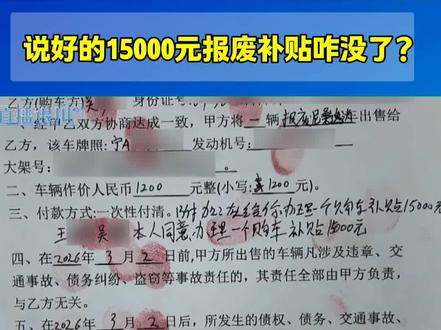 说好的15000元报废补贴咋没了？
直播银川
乙方(购车方)吴 身份证号:
一、经甲乙双方协商达成一致，甲方将一辆报废 出售给
乙方，该车牌照:宁A 发动机号:
大架号: 。
二、车辆作价人民币1200元整(小写:1200元)。
三、付款方式:一次性付清。 补贴15000元
王 吴 本人同意办理一个购车补贴15000元
四、在2026年3月2日前,甲方所出售的车辆凡涉及违章、交
通事故、债务纠纷、盗窃等事故责任的，其责任全部由甲方负责，
与乙方无关。
五、在2026年3月2日后，所发生的债权、债务、交通事故、